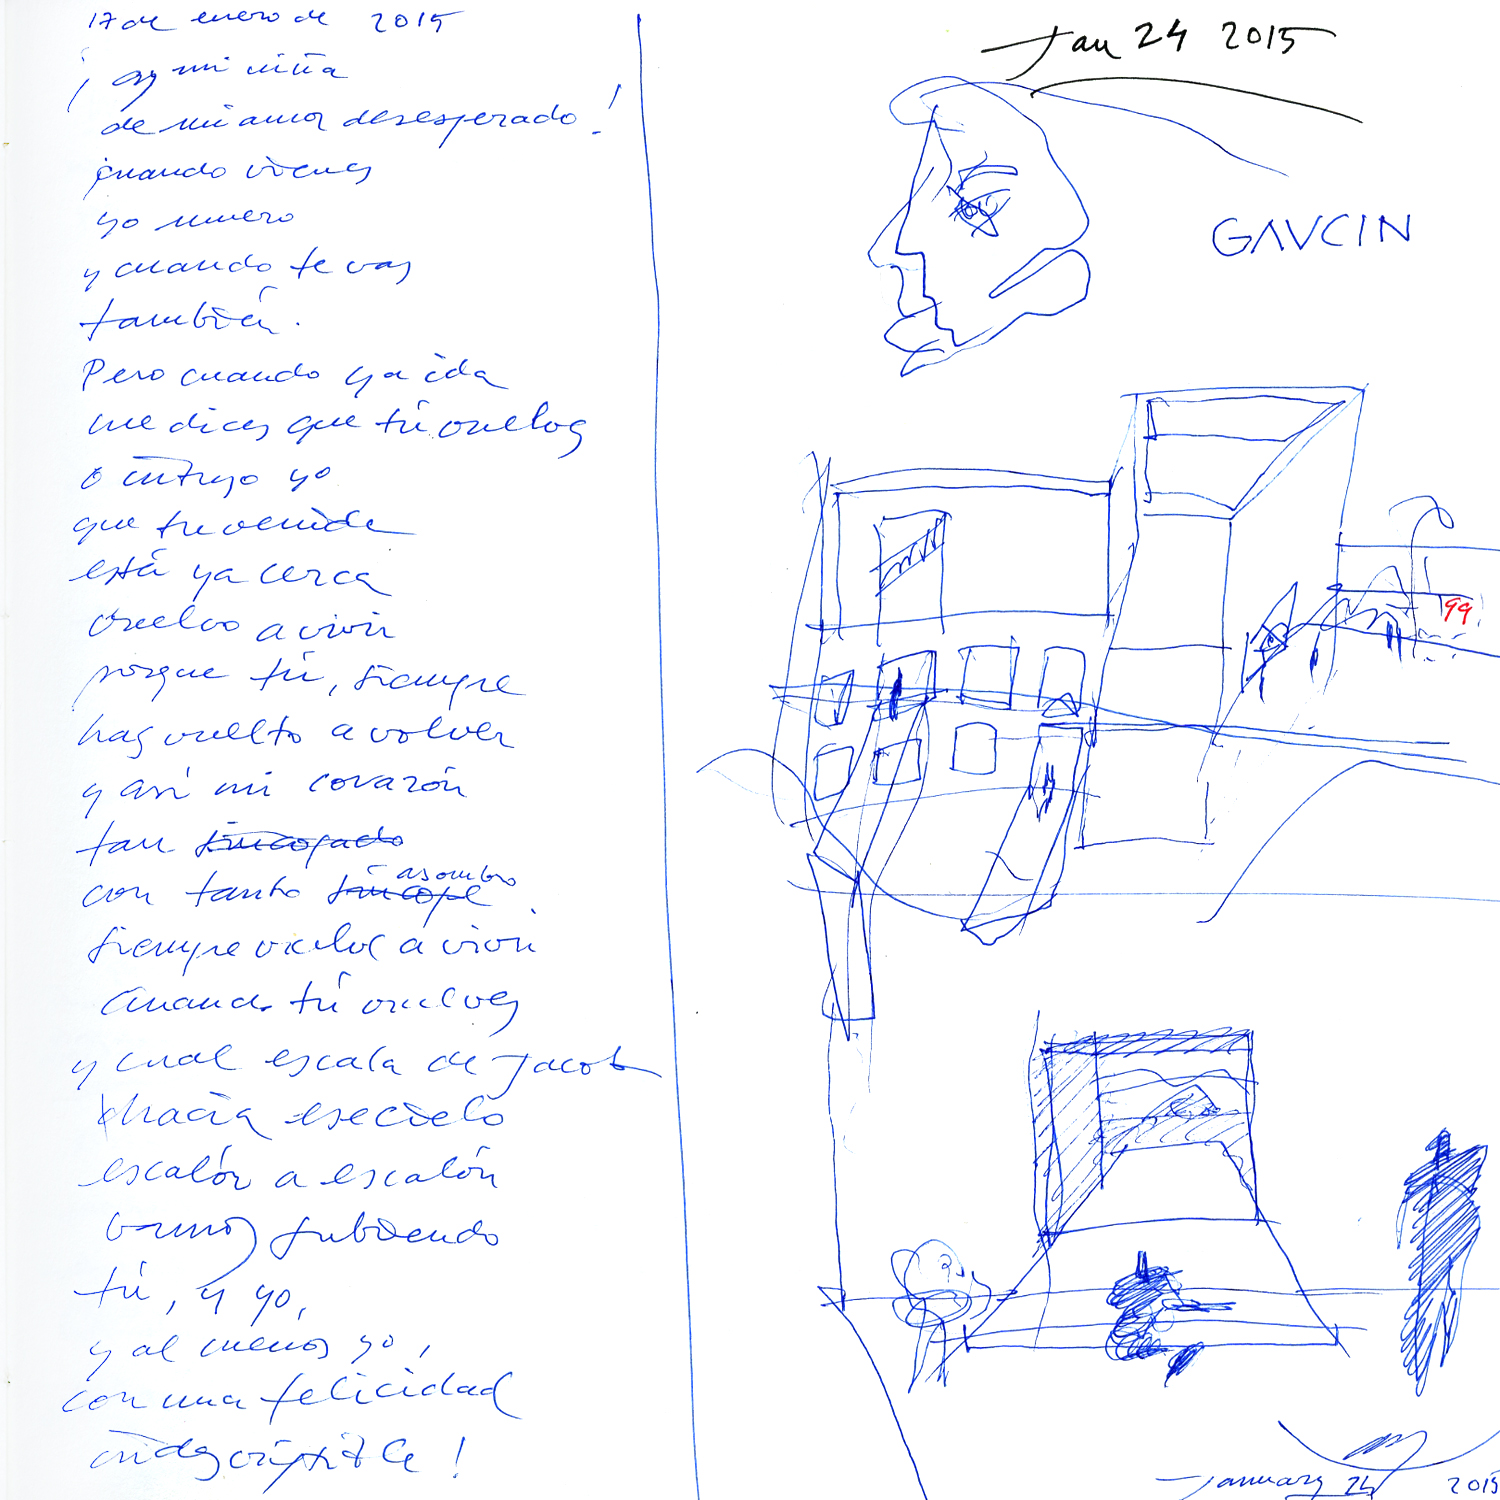 17 de enero de 2015
¡ ay mi niña
de mi amor desesperado !
cuando vienes
yo muero
y cuando te vas
también.
Pero cuando ya ida
me dices que tú vuelves
o intuyo yo
que tu venida
está ya cerca
vuelvo a vivir
porque tú, siempre
has vuelto a volver
y así mi corazón
tan
asombro
con tanto
siempre vuelve a vivir
Cuando tú vuelves
y cual escala de Jacob
hacia ese cielo
escalón a escalón
vamos subiendo
tú, y yo,
y al menos yo,
con una felicidad
indescriptible !
Jan 24 2015
GAUCIN
99
January 24 2015